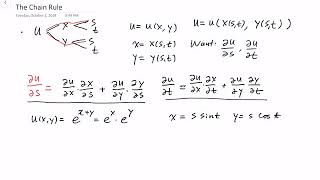 The Chain Rule
Tuesday, October 2, 2018 8:49 PM
u x s t y s t u = u(x,y) u = u(x(s,t), y(s,t))
x = x(s,t) Want: ∂u/∂s, ∂u/∂t
y = y(s,t)
∂u/∂s = ∂u/∂x ∂x/∂s + ∂u/∂y · ∂y/∂s ∂u/∂t = ∂u/∂x · ∂x/∂t + ∂u/∂y · ∂y/∂t
u(x,y) = e^(x+y) = e^x · e^y x = s sin t y = s cos t